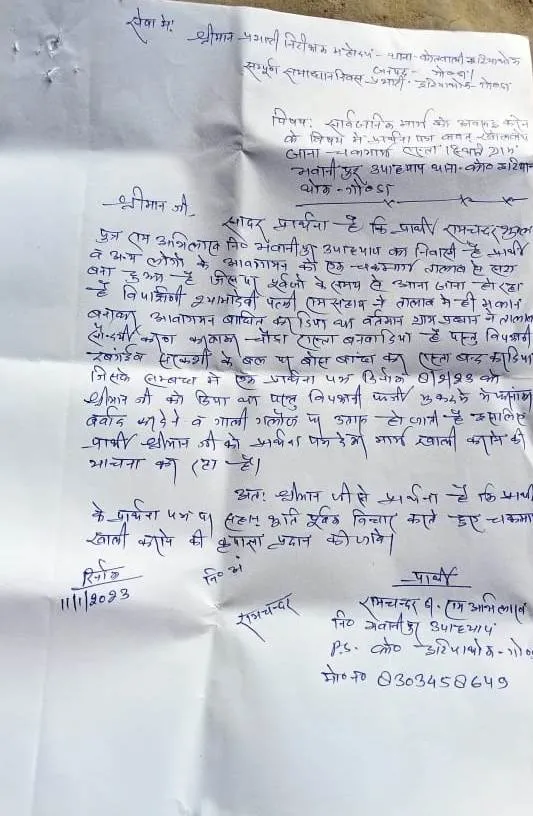 सेवा में,
श्रीमान प्रभारी निरीक्षक महोदय- थाना- कोतवाली इटियाथोक
सम्पूर्ण समाधान दिवस जनपद- गोण्डा।
प्रभारी- इटियाथोक- गोण्डा
विषय: सार्वजनिक मार्ग को अवरुद्ध करने
के विषय में प्रार्थना पत्र
जाना चकमार्ग रास्ता स्थित ग्राम
भवानीपुर उपाध्याय थाना- को० इटिया
थोक- गोण्डा
श्रीमान जी,
सादर प्रार्थना है कि प्रार्थी रामचन्दर
पुत्र राम अभिलाख नि० भवानीपुर उपाध्याय का निवासी है प्रार्थी
व अन्य लोगों के आवागमन को एक चकमार्ग तालाब से होकर
बना हुआ है जिस पर पूर्वजों के समय से आना जाना हो रहा
है विपक्षिनी श्यामादेवी पत्नी राम सहाय ने तालाब में ही मकान
बनाकर आवागमन बाधित कर दिया था वर्तमान ग्राम प्रधान ने तालाब
सौन्दर्यी करण करवाकर चौड़ा रास्ता बनवा दिया है परन्तु विपक्षिनी
सरकशी के बल पर बांस बांधकर रास्ता बन्द कर दिया
जिसके सम्बन्ध में एक प्रार्थना पत्र दिनांक 8/1/23 को
श्रीमान जी को दिया था परन्तु विपक्षिनी फर्जी मुकदमे में फंसाकर
बर्बाद कर देने व गाली गलौज पर उतारू हो जाती है इसलिए
प्रार्थी श्रीमान जी को प्रार्थना पत्र देकर मार्ग खाली कराने की
याचना कर रहा है।
अतः श्रीमान जी से प्रार्थना है कि प्रार्थी
के प्रार्थना पत्र पर सहानुभूति पूर्वक विचार करते हुए चकमा
खाली कराने की कृपा प्रदान की जावे।
दिनांक
11/1/2023
नि० अं
रामचन्दर
प्रार्थी
रामचन्दर पु. राम अभिलाख
नि० भवानीपुर उपाध्याय
P.S. को० इटियाथोक- गो०
मो० न० 8303458649